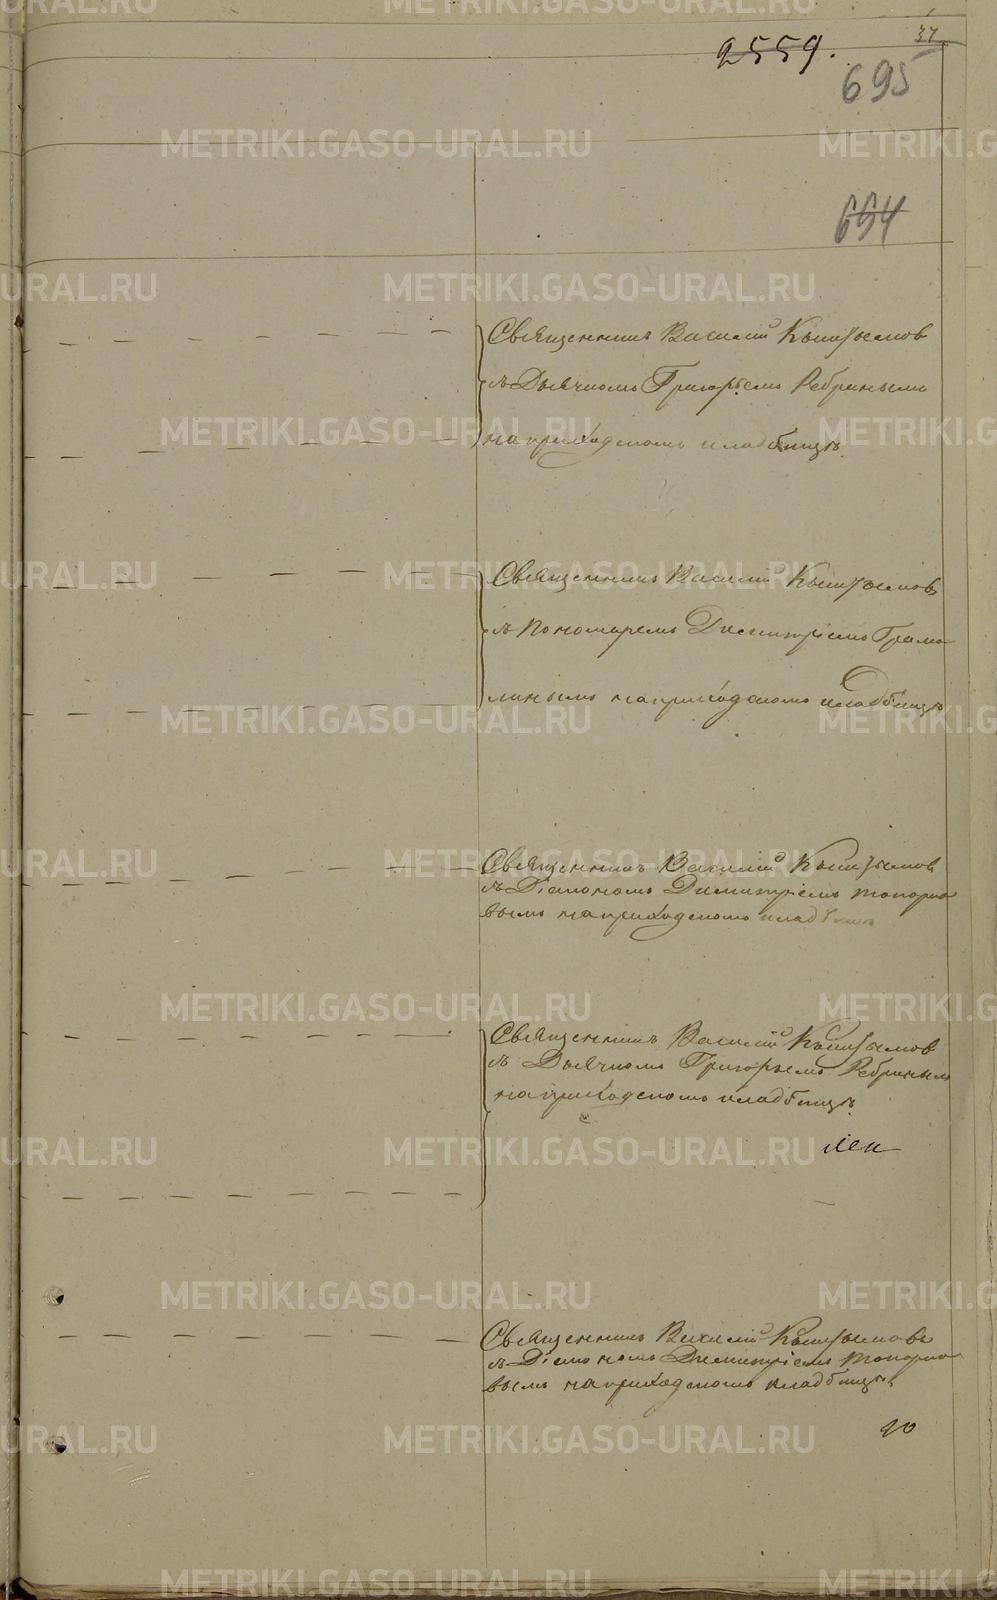 37
2559.
695
694
Священникъ Василий
съ Дьячкомъ Григорьемъ Ребринымъ
на приходскомъ кладбищѣ.
Священникъ Василий
съ Пономаремъ Димитріемъ
на приходскомъ кладбищѣ
Священникъ Василий
съ Діакономъ Димитріемъ Топорко
вымъ на приходскомъ кладбищѣ
Священникъ Василий
съ Дьячкомъ Григорьемъ Ребринымъ
на приходскомъ кладбищѣ.
Священникъ Василий
съ Діакономъ Димитріемъ Топорко
вымъ на приходскомъ кладбищѣ,
METRIKI.GASO-URAL.RU